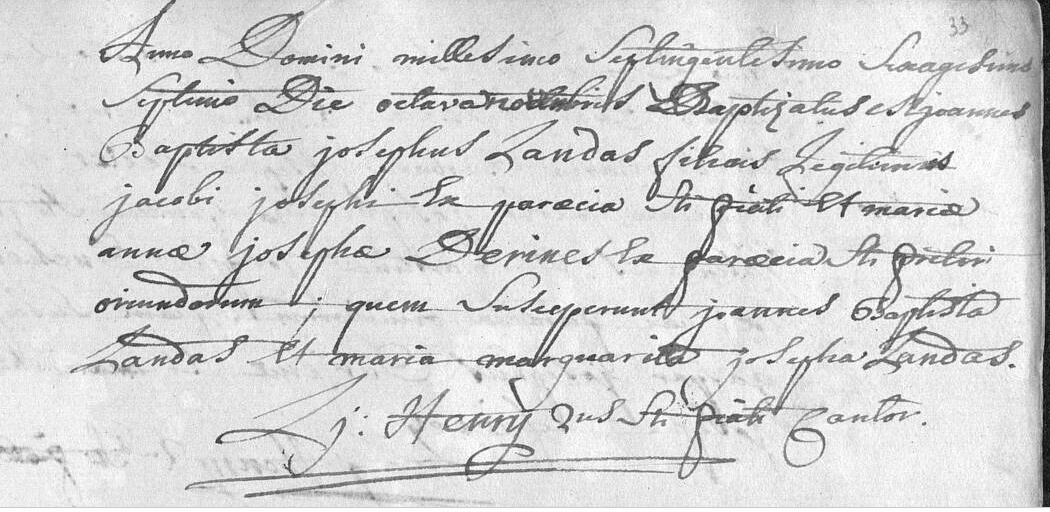 33
Anno Domini millesimo Septingentesimo Sexagesimo
Septimo Die octava Baptizatus est joannes
Baptista josephus Landas filius Legitimus
jacobi josephi Ex parœcia Sti piati Et mariæ
annæ josephæ Derines Ex parœcia Sti
oriundorum ; quem Susceperunt joannes Baptista
Landas Et maria marguarita josepha Landas.
j: Henrÿ 2us Sti piati Cantor.